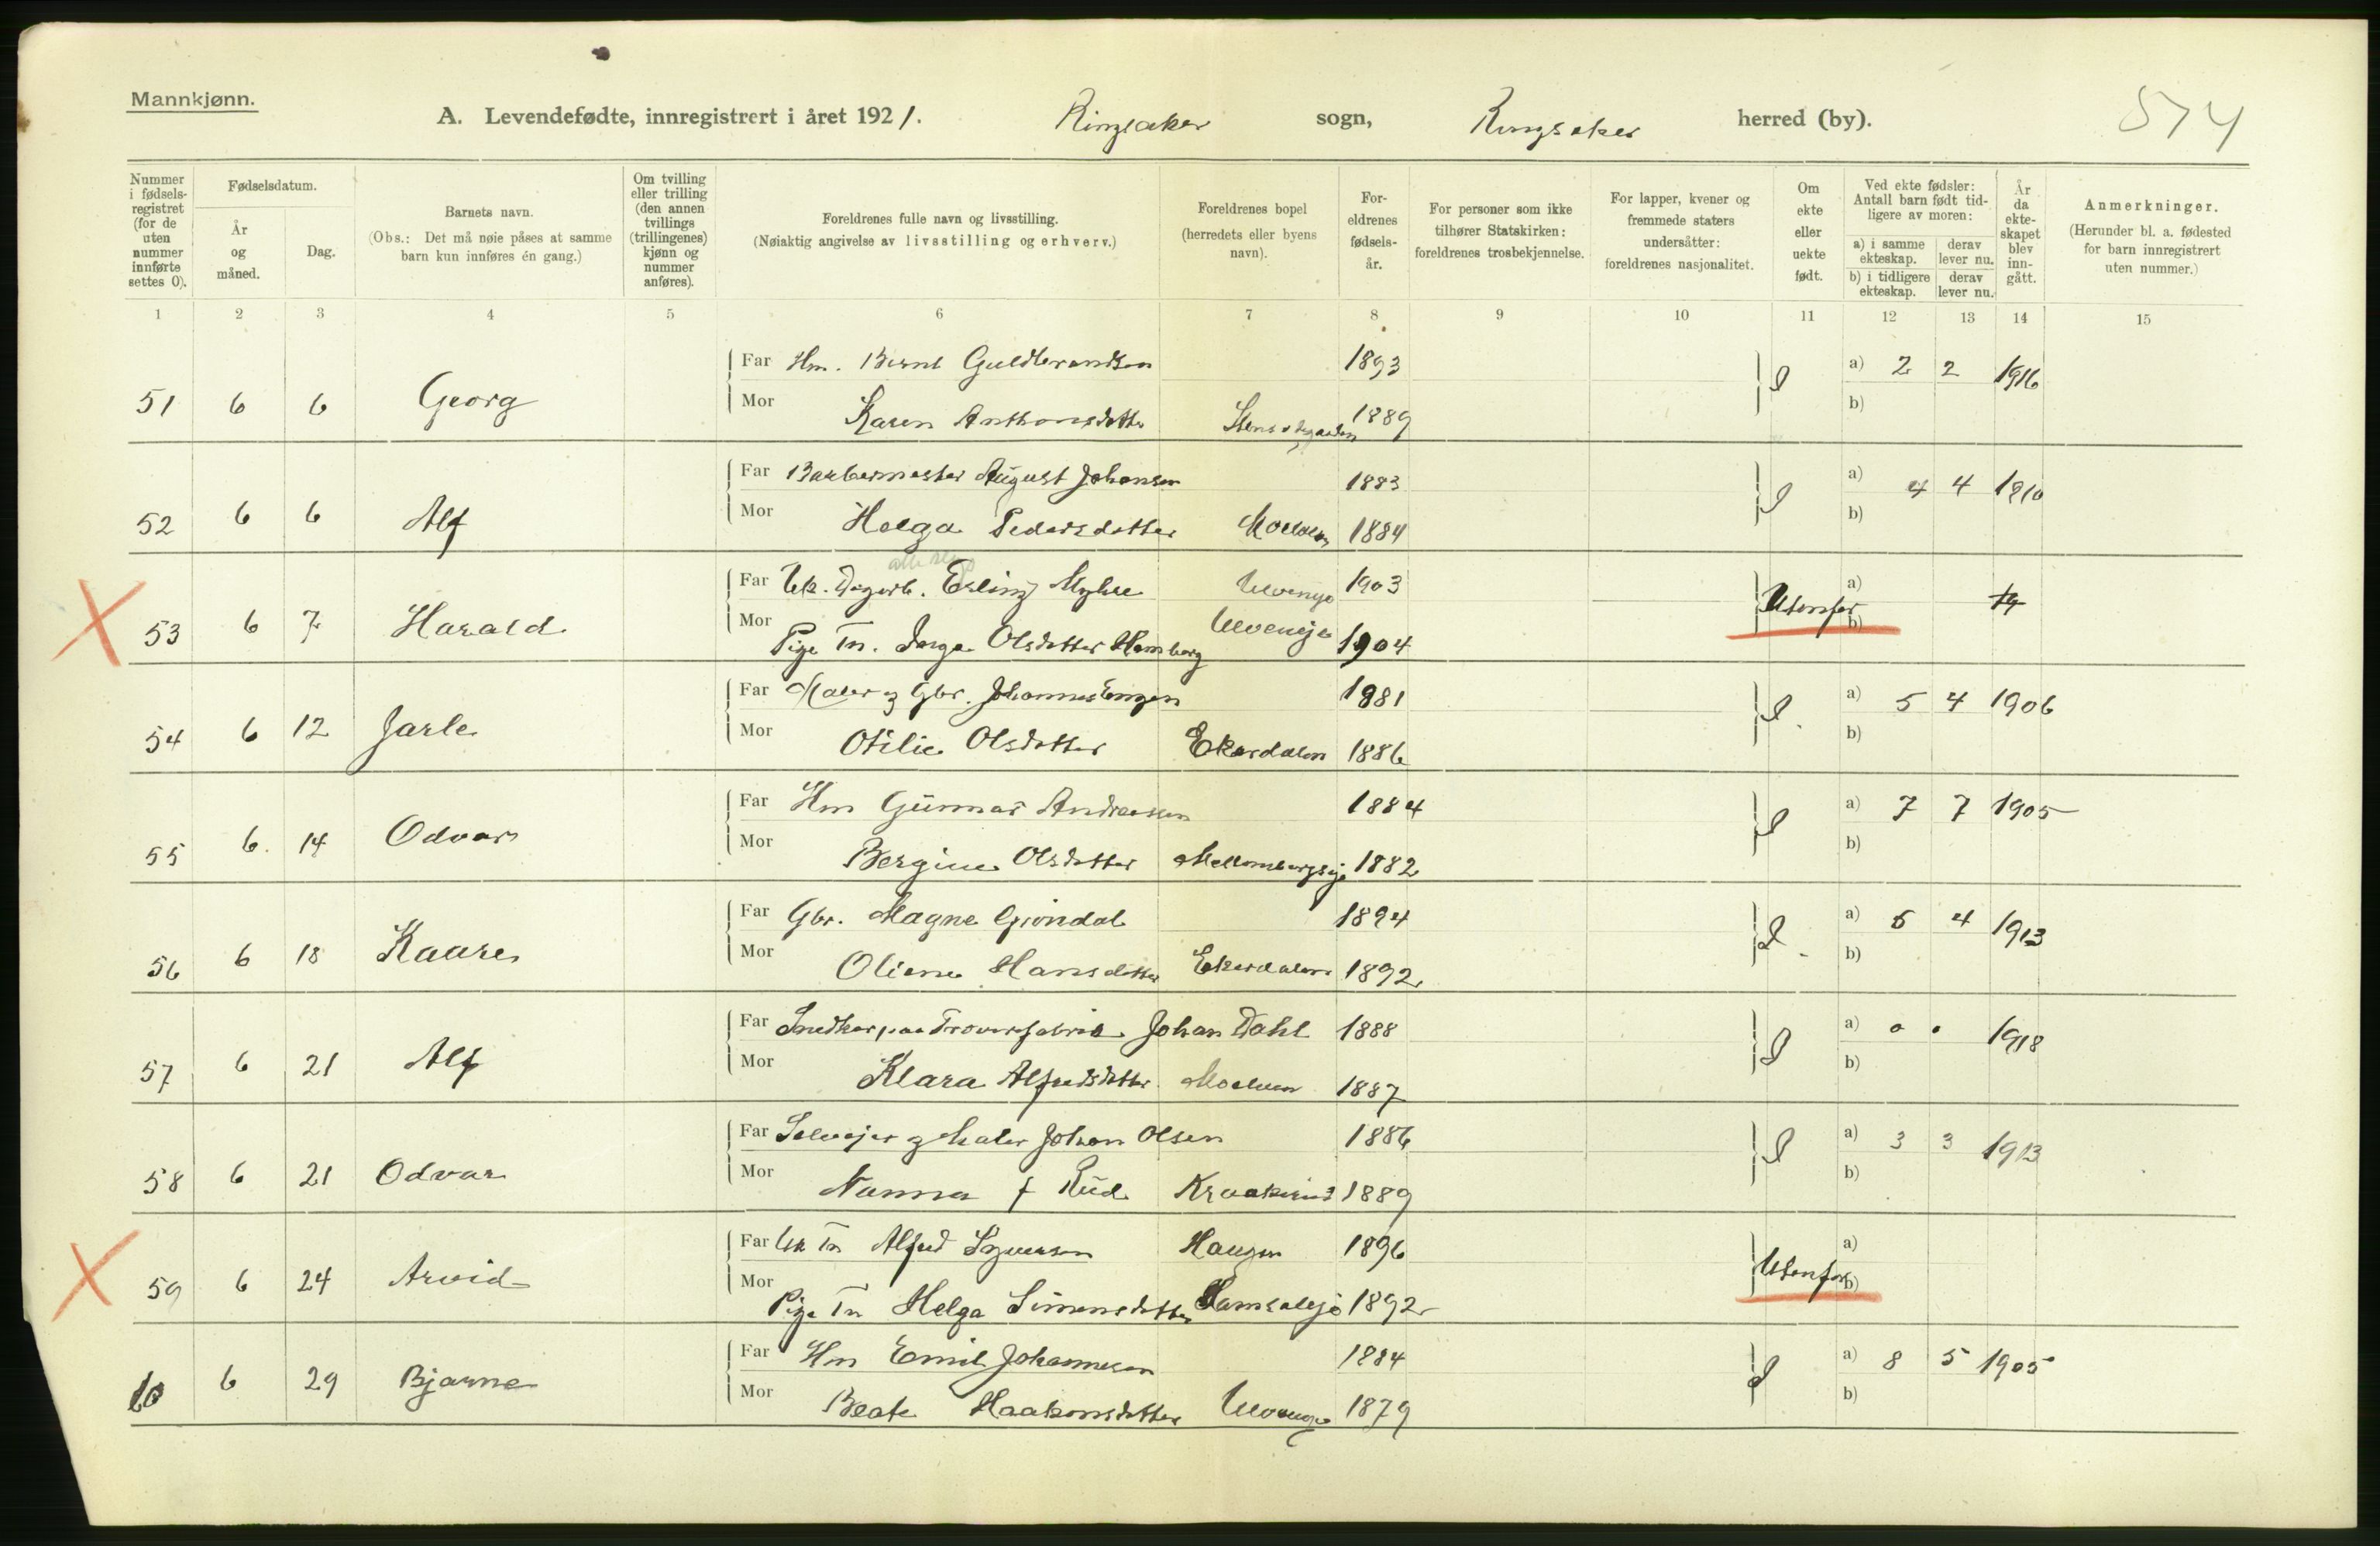 Mannkjønn.
A. Levendefødte, innregistrert i året 1921. Ringsaker sogn, Ringsaker herred (by). 574
Nummer i fødsels-registret (for de uten nummer innførte settes 0).
Fødselsdatum.
År og måned.
Dag.
Barnets navn.
(Obs.: Det må nøie påses at samme barn kun innføres én gang.)
Om tvilling eller trilling (den annen tvillings (trillingenes) kjønn og nummer anføres).
Foreldrenes fulle navn og livsstilling.
(Nøiaktig angivelse av livsstilling og erhverv.)
Foreldrenes bopel (herredets eller byens navn).
For-eldrenes fødsels-år.
For personer som ikke tilhører Statskirken: foreldrenes trosbekjennelse.
For lapper, kvener og fremmede staters undersåtter: foreldrenes nasjonalitet.
Om ekte eller uekte født.
Ved ekte fødsler: Antall barn født tid-ligere av moren:
a) i samme ekteskap. derav lever nu.
b) i tidligere ekteskap. derav lever nu.
År da ekte-skapet blev inn-gått.
Anmerkninger.
(Herunder bl. a. fødested for barn innregistrert uten nummer.)
1 2 3 4 5 6 7 8 9 10 11 12 13 14 15
Far Hm. Bernt Guldbrandsen 1893 a) 2 2 1916
51 6 6 Georg
Mor Karen Anthonsdatter 1889 b)
Far Barbermester August Johansen 1883 a) 4 4 1910
52 6 6 Alf
Mor Helga Pedersdatter Moelven 1884 b)
Far Uk. Dagarb. Erling Myhre 1903 a)
53 6 7 Harald Utenfor
Mor Pige Tn. Inga Olsdatter Hamberg 1904 b)
Far Maler og Gbr. Johannes Engen 1881 a) 5 4 1906
54 6 12 Jarle
Mor Otilie Olsdatter Ekersdalen 1886 b)
Far Hm Gunnar Andreassen 1884 a) 7 7 1905
55 6 14 Odvar
Mor Bergine Olsdatter 1882 b)
Far Gbr. Magne Grøndal 1894 a) 5 4 1913
56 6 18 Kaare
Mor Oliane Hansdatter Ekersdalen 1892 b)
Far Snedker paa Johan Dahl 1888 a) 0 0 1918
57 6 21 Alf
Mor Klara Alfredsdatter Moelven 1887 b)
Far Selveier og Maler Johan Olsen 1886 a) 3 3 1913
58 6 21 Odvar
Mor Nanna f Rud 1889 b)
Far Uk Tn Alfred Syversen Haugen 1896 a)
59 6 24 Arvid Utenfor
Mor Pige Tn Helga Simensdatter 1892 b)
Far Hm Emil Johannesen 1884 a) 8 5 1905
60 6 29 Bjarne
Mor Beate Haakonsdatter 1879 b)